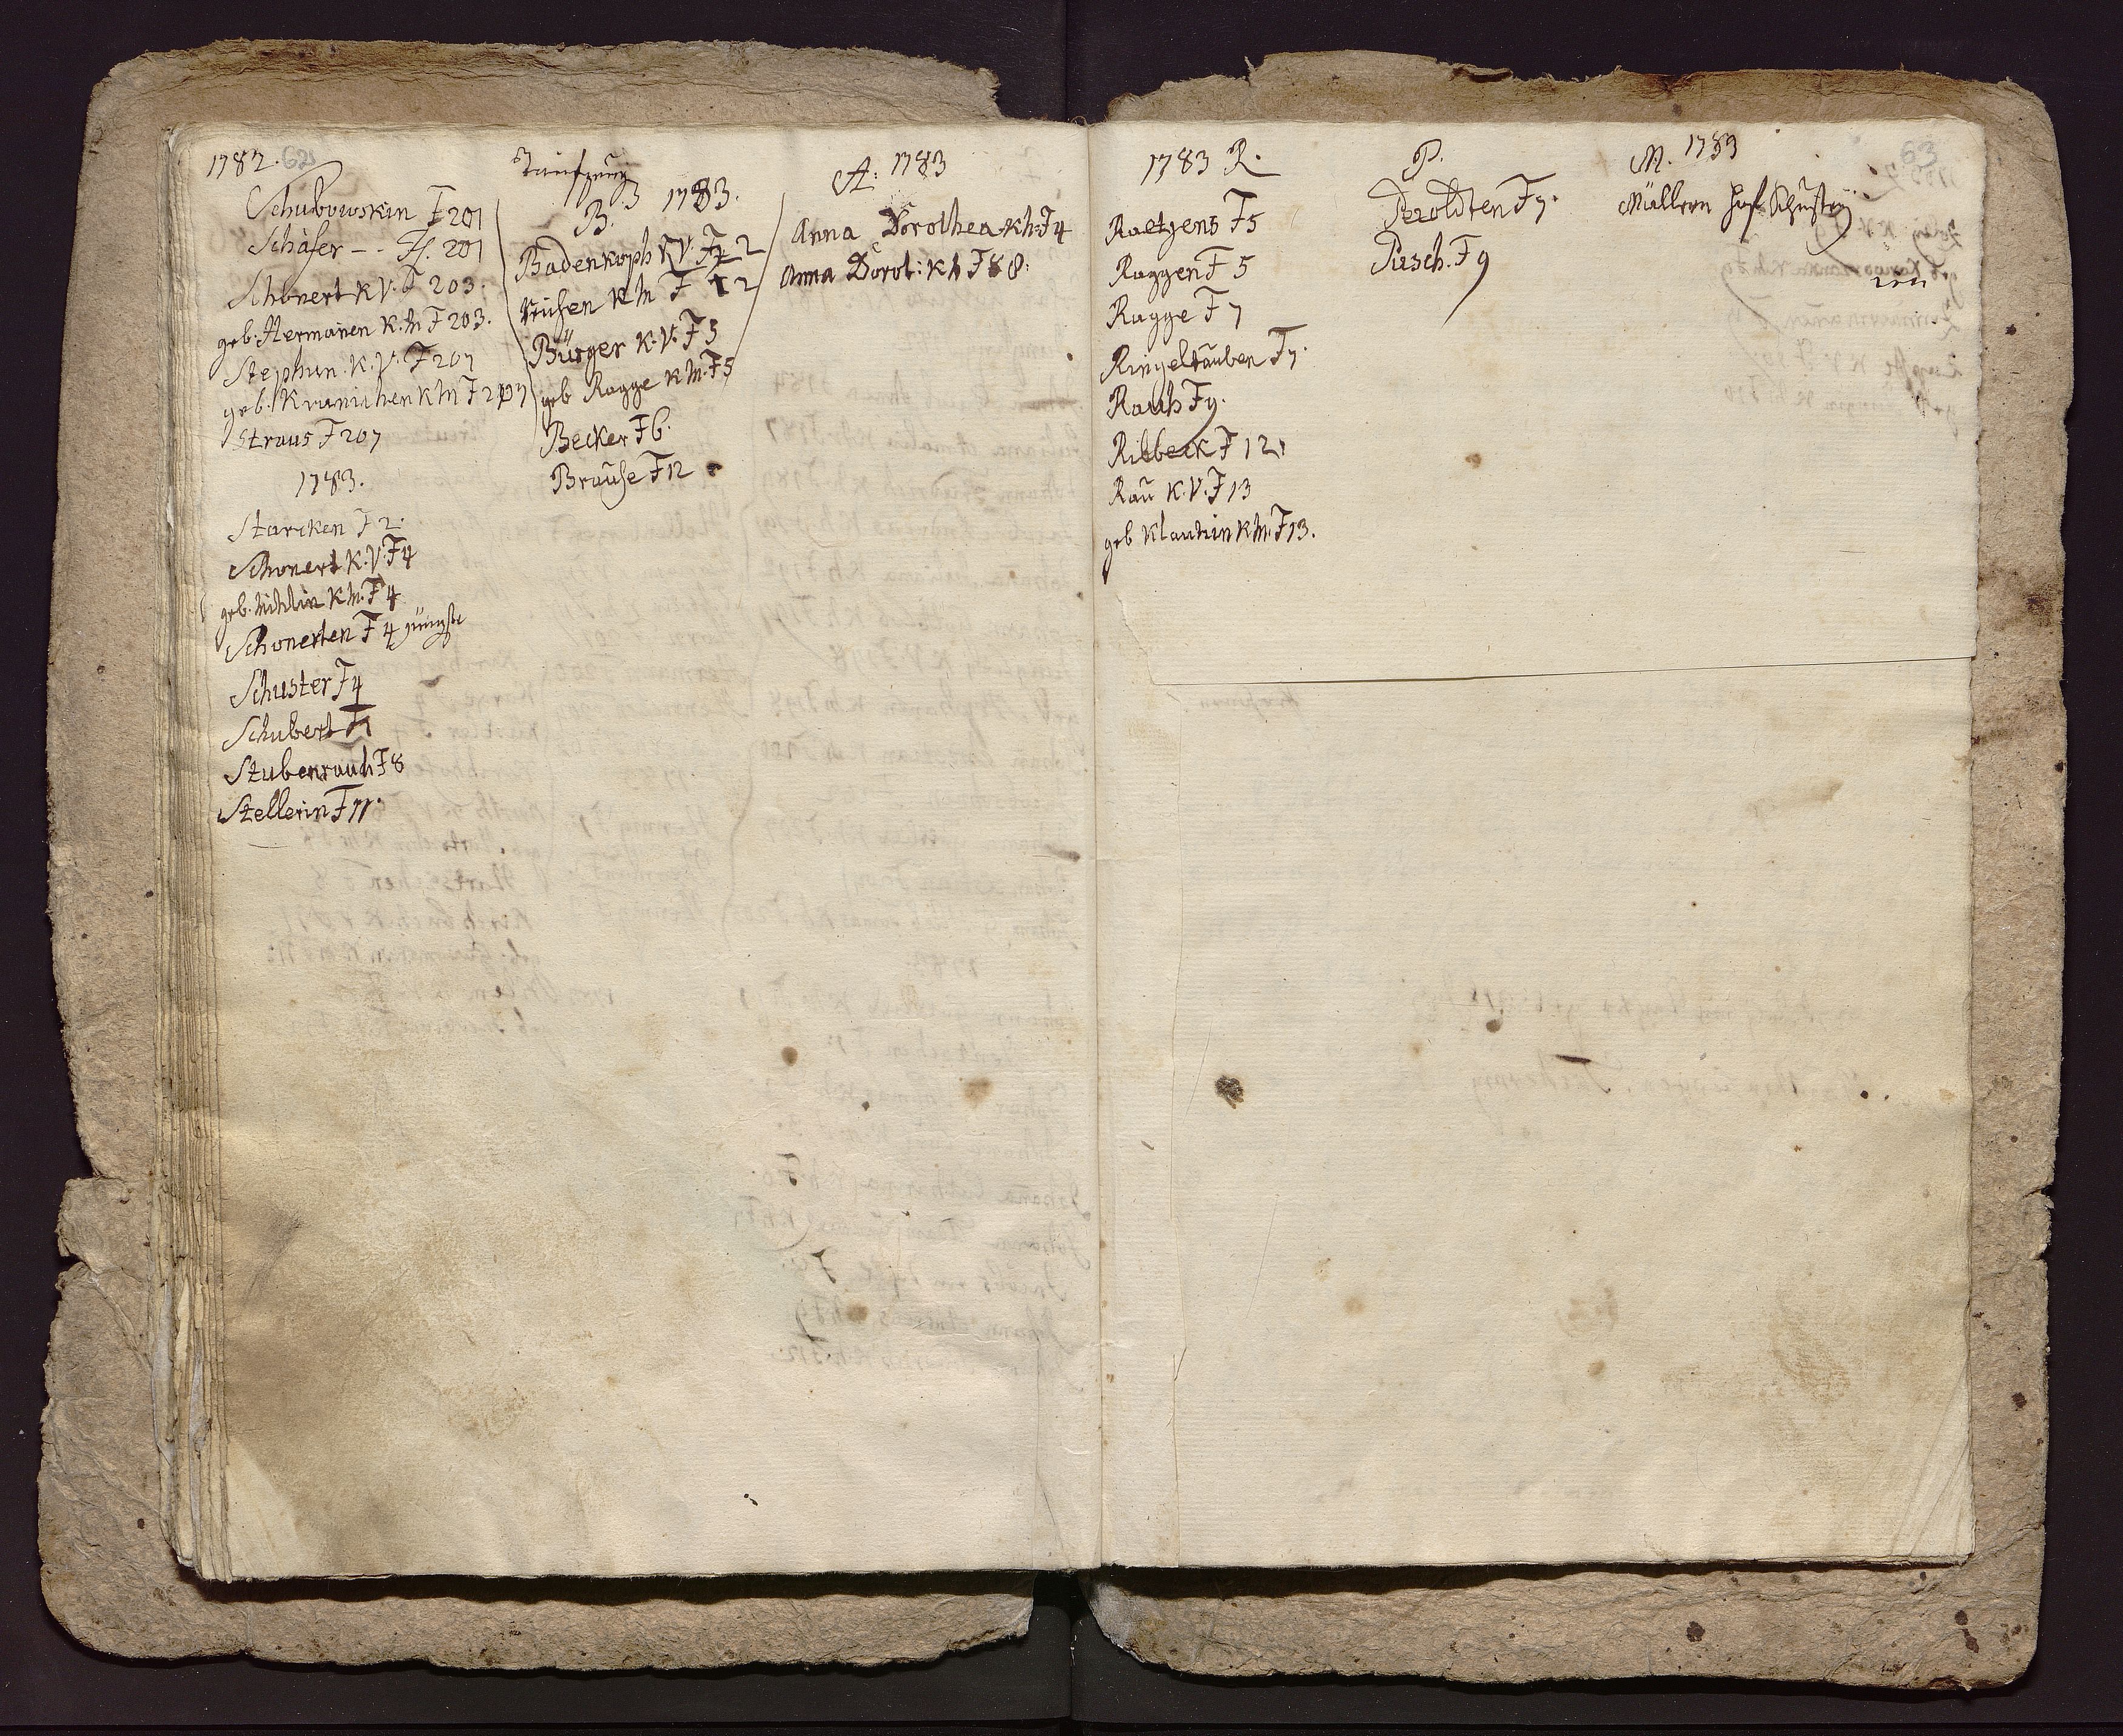 1782. 62
Schubowskin F 201
Schäfer -- F. 201
Schonert K.V. F 203.
geb. Hermanen K.M F 203.
Stephan. K.V. F 207
geb. Kranichen K M F 207
Straus F 207
1783.
Starcken F 2.
Schonert K.V. F4
geb. K M. F 4
Schonerten F 4 jüngste
Schuster F 4
Schubert F7
Stubenrauch F 8
Stellerin F 11.
B. 1783.
Badenkoph K V. F 2
K M F 2
Bürger K.V. F 5
geb Ragge K M. F5
Becker F 6.
Brause F 12
A. 1783
Anna Dorothea Kh. F4
Anna Dorot: Kh F 8.
1783 R.
Raetjens F5
Raggen F 5
Ragge F 7
Ringeltauben F 7.
Rauh F 9.
Ribbeck F 12.
Rau K.V. F 13
geb Klautzin K M. F 13.
P.
F 7.
Pusch. F 9
63
M. 1783
Müllern Hof